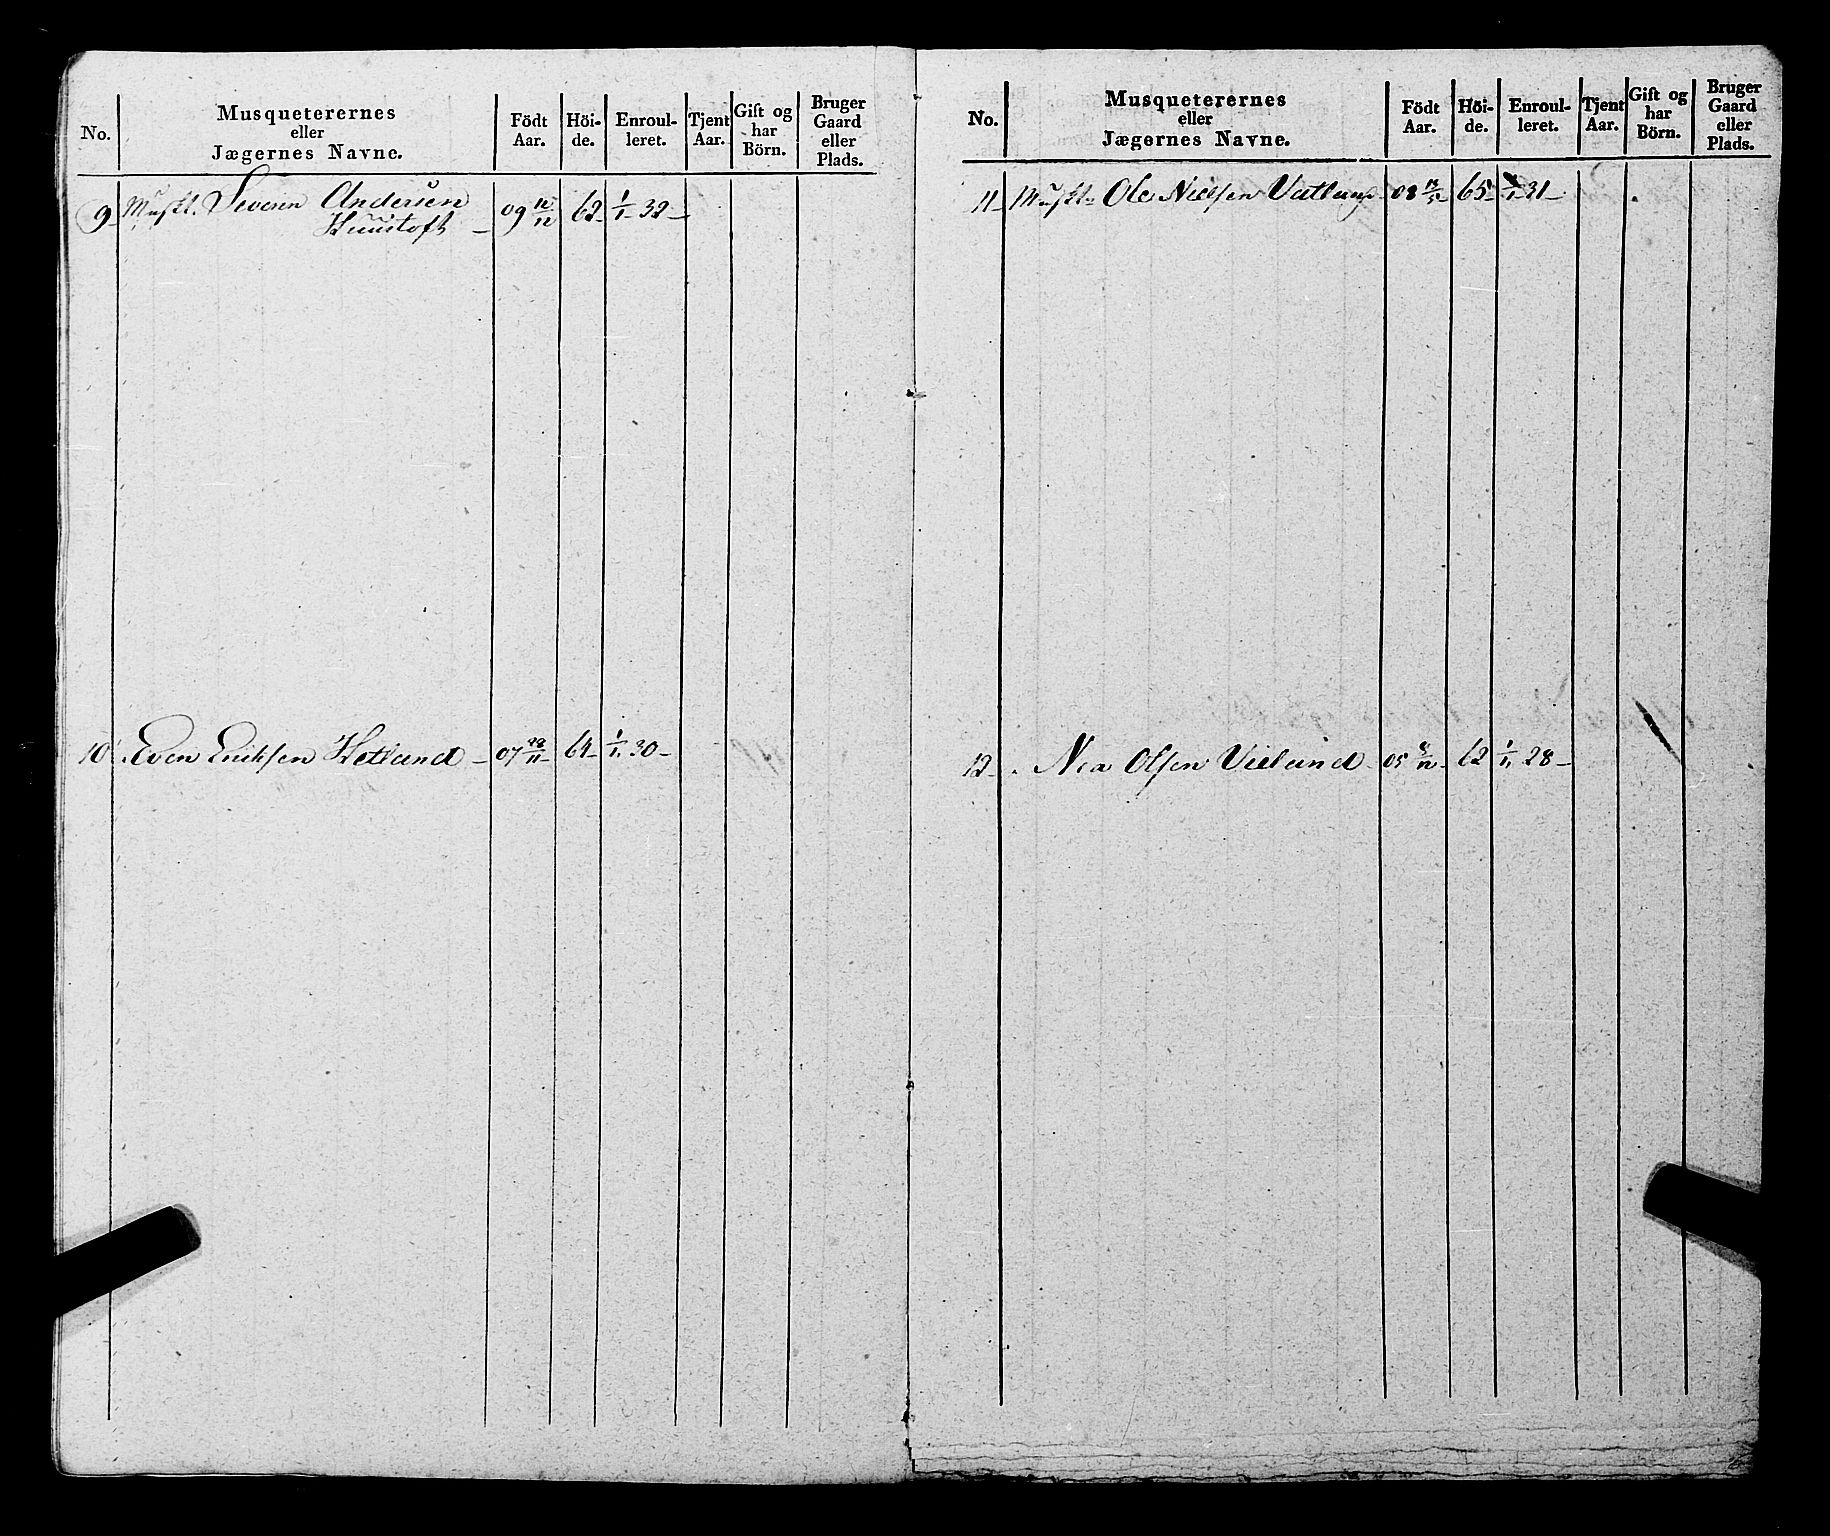 No.
Musqueterernes
eller
Jægernes Navne.
Födt
Aar.
Höi-
de.
Enroul-
leret.
Tjent
Aar.
Gift og
har
Börn.
Bruger
Gaard
eller
Plads.
9 Muskt. Severin Andersen 09 12/12 62 1/1 32
10 Even Eriksen Hetland 07 29/11 64 1/1 30
No.
Musqueterernes
eller
Jægernes Navne.
Födt
Aar.
Höi-
de.
Enroul-
leret.
Tjent
Aar.
Gift og
har
Börn.
Bruger
Gaard
eller
Plads.
11 Muskt. Ole Nielsen Vatland 08 65 1/1 31
12 Olsen 05 62 1/1 28